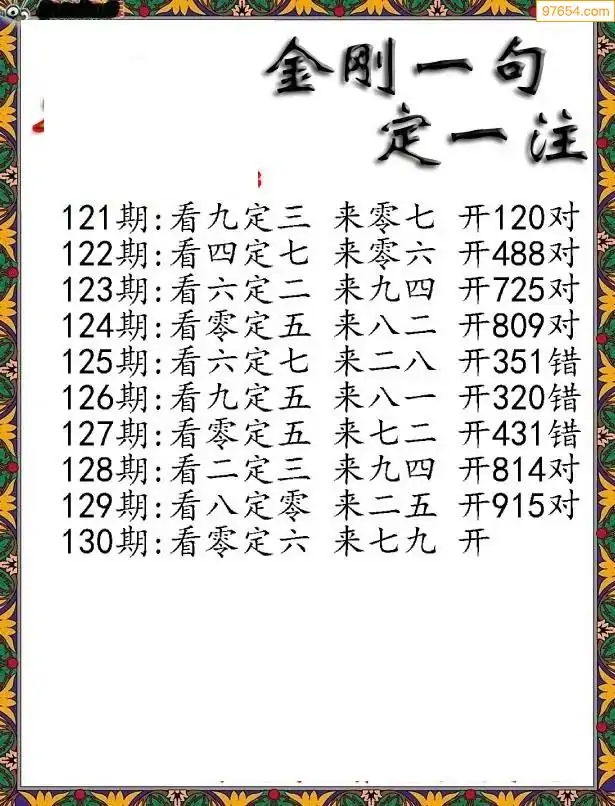 97654.com
金刚一句
定一注
121期:看九定三 来零七 开120对
122期:看四定七 来零六 开488对
123期:看六定二 来九四 开725对
124期:看零定五 来八二 开809对
125期:看六定七 来二八 开351错
126期:看九定五 来八一 开320错
127期:看零定五 来七二 开431错
128期:看二定三 来九四 开814对
129期:看八定零 来二五 开915对
130期:看零定六 来七九 开